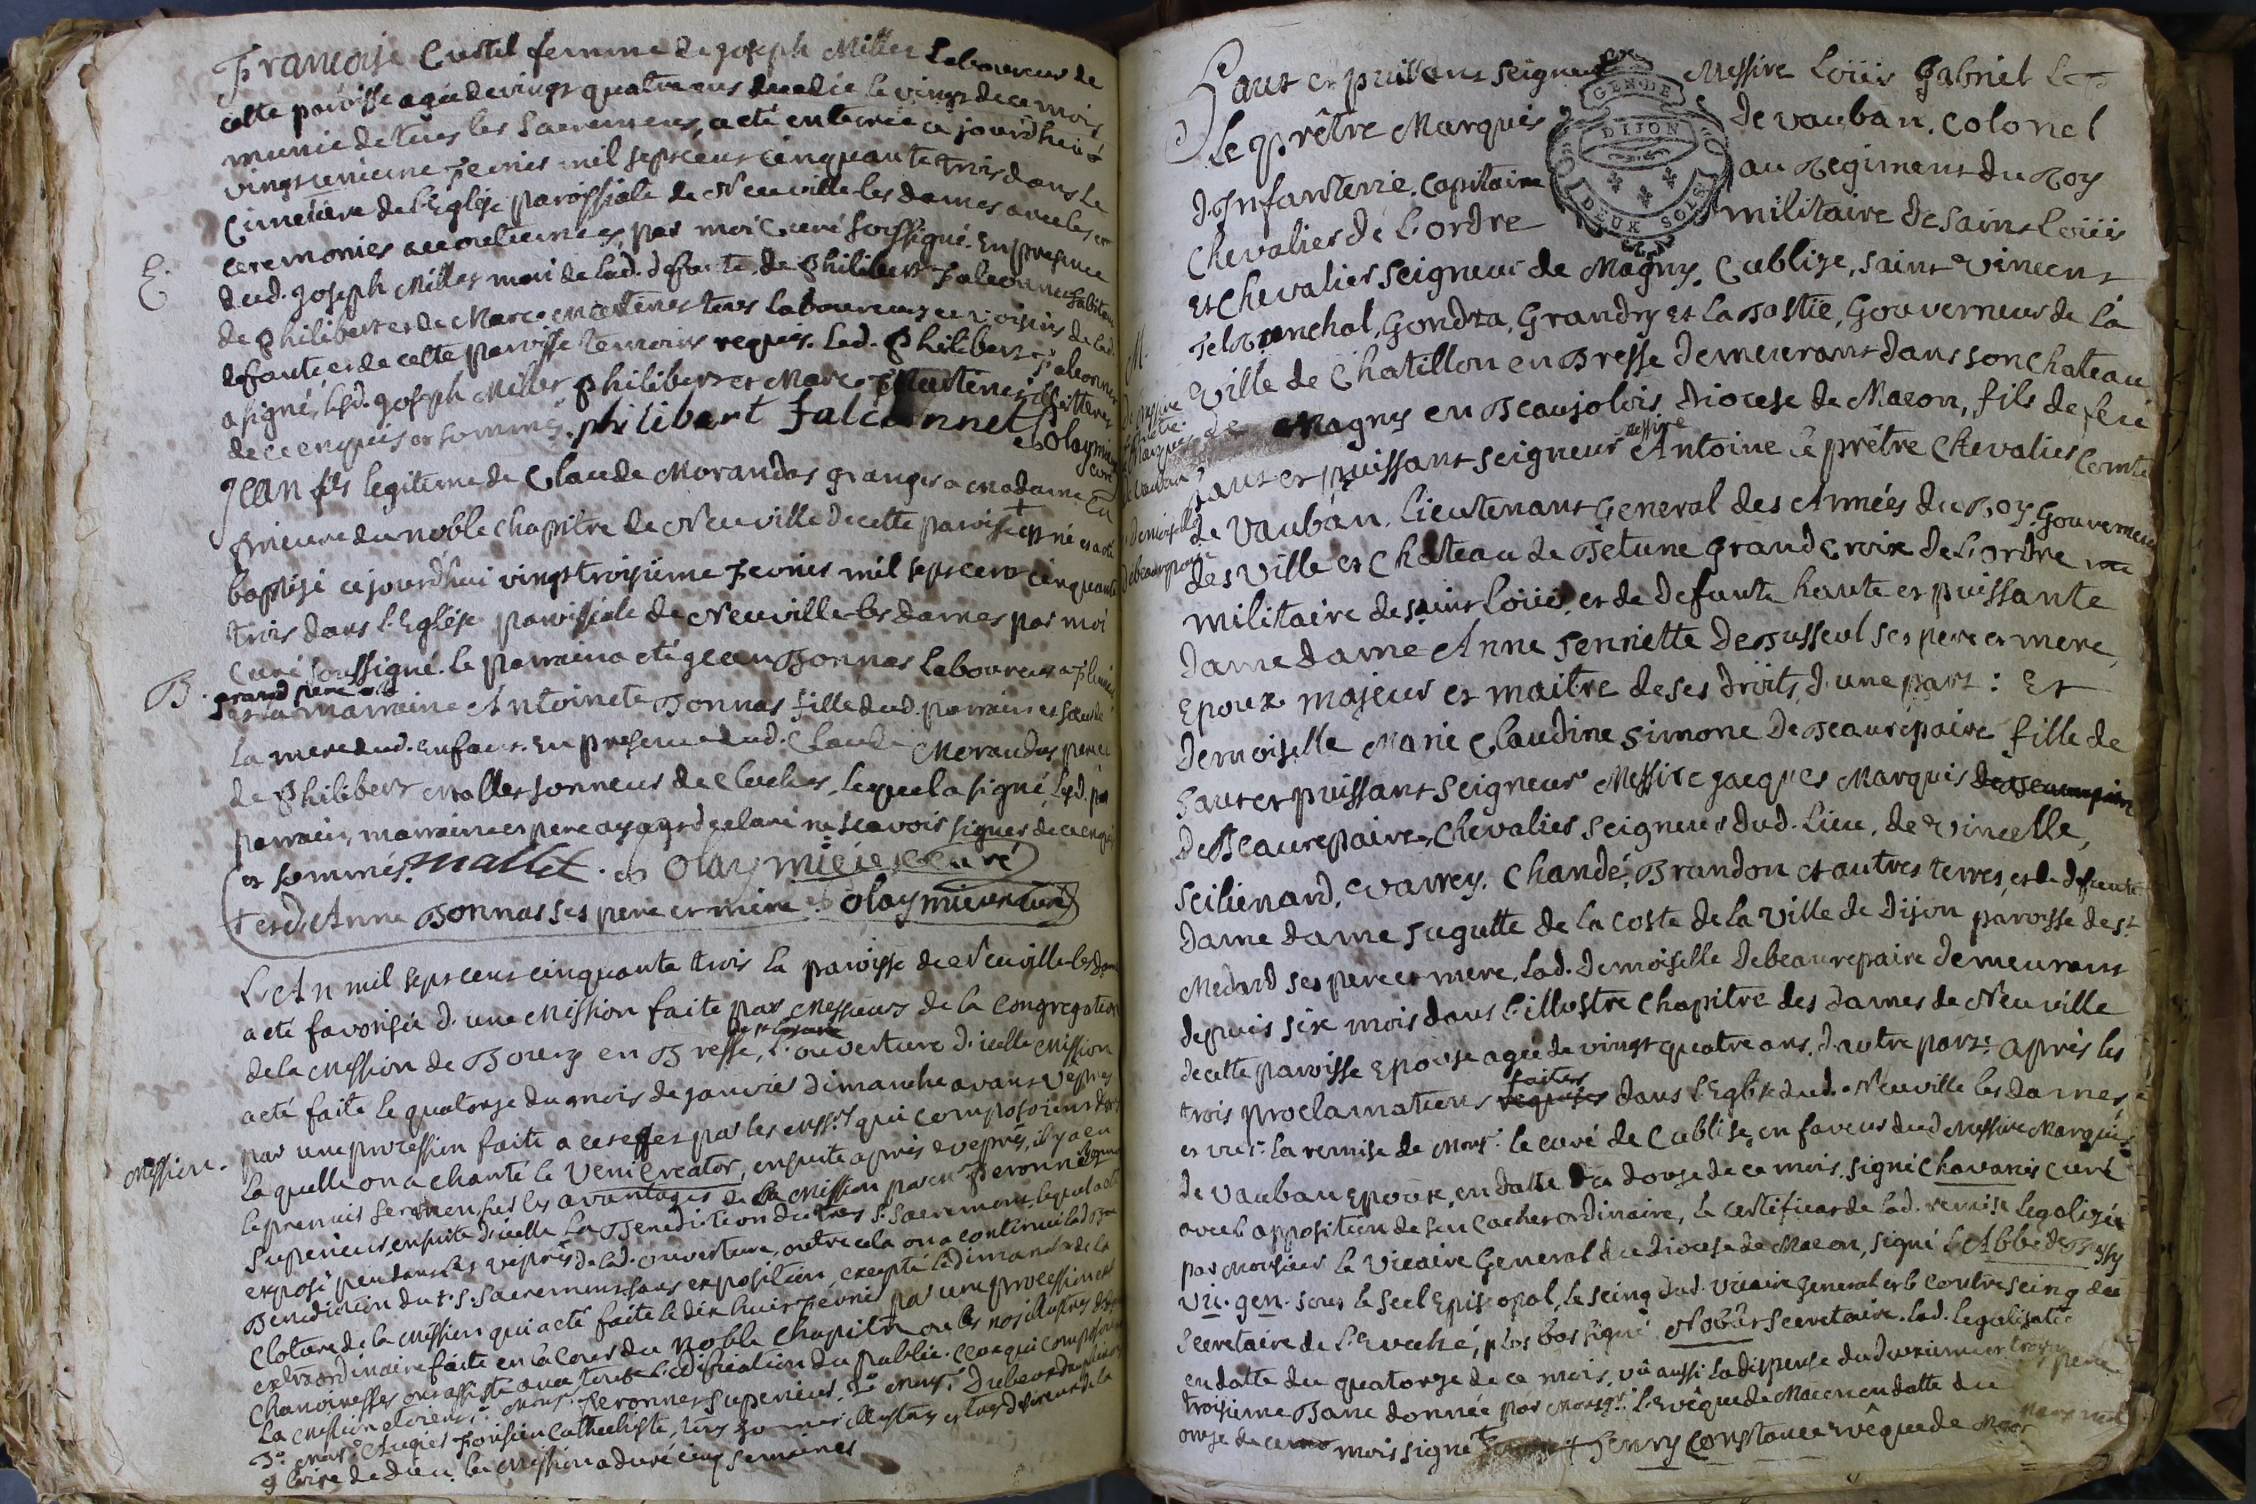 Françoise Curtil femme de joseph Miller Laboureur de
cette paroisse agée de vingt quatre ans decedée le vingt de ce mois
munie de tous les Sacremens, a été enterrée ce jourd'hui
vingt unieme Fevrier mil sept cent cinquante trois dans Le
Cimetiere de l'Eglise paroissiale de Neuville les dames avec les
ceremonies accoutumées, par moi Curé soussigné. En presence
E.
dud. joseph Miller mari de lad. defunte, de Philibert Falconnet
de Philibert et de Marc tous laboureurs et voisins de lad.
defunte et de cette paroisse temoins requis. Led. Philibert Falconnet
a signé, lesd. joseph Miller, Philibert et Marc illitterés
de ce enquis et sommés. philibert falconnet
Olaymier curé
jean fils legitime de Claude Morandas granger a Madame La
prieure du noble Chapitre de Neuville de cette paroisse + est né et a été
baptisé ce jourd'hui vingt troisieme Fevrier mil sept cent cinquante
trois dans l'Eglise paroissiale de Neuville les dames par moi
Curé soussigné. le parrain a été jean Bonnas Laboureur
B. grand pere
et la marraine Antoinete Bonnas fille dud. parrain et soeur de
la mere dud. enfant. En presence dud. Claude Morandas pere et
de Philibert Mallet sonneur de Cloches, Lequel a signé, Lesd.
parrain, marraine et pere ayant declaré ne scavoir signer de ce enquis
et sommés. mallet. Olaymier curé
+ et d'Anne Bonnas ses pere et mere Olaymier curé
L'An mil sept cent cinquante trois la paroisse de Neuville les dames
a eté favorisée d'une Mission faite par Messieurs de la Congregation
de la Mission de Bourg en Bresse, l'ouverture d'icelle Mission
a eté faite le quatorze du mois de janvier dimanche avant vespres
par une procession faite a cet effet par les Mess.rs qui composoient
Mission. laquelle on a chanté le Veni Creator, ensuite après vespres, il y a eu
le premier sermon sur les avantages de la Mission par Mr Peronne
superieur, ensuite d'icelle La Benediction du tres St. Sacrement, lequel a eté
exposé pendant les vespres de lad. ouverture, outre cela on a continué lad.
Benediction du t. S. Sacrement sans exposition, excepté le dimanche de la
Cloture de la Mission qui a eté faite le dix huit Fevrier par une procession
extraordinaire faite en la Cour du Noble Chapitre ou les nos illustres dames
Chanoinesses ont assisté avec toute l'edification du public. Ceux qui composoient
La Mission etoient Monsr Peronne superieur. 2° Monsr.
3° Monsr Augier Catechiste, tous hommes illustres et tous desireux de la
gloire de dieu. la Mission a duré cinq semaines
Haut et puissant seigneur Messire Loüis Gabriel Le
GEN DE DIJON DEUX SOLS
Le prêtre Marquis de Vauban. Colonel
d'Infanterie. Capitaine au Regiment du Roy
Chevalier de l'ordre militaire de Saint Loüis
Et Chevalier Seigneur de Magny, Cublize, saint Vincent
Gondra, Grandry et la Bastie, Gouverneur de la
M.
Ville de Chatillon en Bresse demeurant dans son Chateau
de Magny en Beaujolois Diocese de Macon, fils de feu
haut et puissant seigneur messire Antoine le prêtre Chevalier Comte
de Vauban. Lieutenant General des Armées du Roy, Gouverneur
des Ville et Chateau de Betune grand croix de l'ordre
militaire de saint Loüis, et de defunte haute et puissante
dame dame Anne Henriette De Busseul ses pere et mere,
Epoux majeur et maitre de ses droits, d'une part : Et
demoiselle Marie Claudine Simone De Beaurepaire fille de
haut et puissant Seigneur Messire jacques Marquis
De Beaurepaire, Chevalier Seigneur dud. Lieu, de Vincelle,
Scilienard, Varrey, Chandé, Brandon et autres terres, et de defunte
dame dame jugutte de la Coste de la Ville de Dijon paroisse de st.
Medard ses pere et mere, Lad. Demoiselle De beaurepaire Demeurant
depuis six mois dans l'illustre Chapitre des dames de Neuville
de cette paroisse Epouse agée de vingt quatre ans, d'autre part. Après les
trois proclamations faites dans l'Eglise dud. Neuville les dames,
et vu la remise de Monsr. le curé de Cublise en faveur dud. Messire Marquis
de Vauban Epoux, en datte du douze de ce mois. signé Chavanis curé
avec l'apposition de son Cachet ordinaire, le certificat de lad. remise legalizée
par Monsieur le Vicaire General du diocese de Macon, signé l'Abbé de
Vic. gen. sous le scel Episcopal, le seing dud. Vicaire General et le contreseing du
Secretaire de l'Eveché, plus bas signé Nobis secretaire. Lad. legalisation
en datte du quatorze de ce mois, vû aussi la dispense du deuxieme et
troisieme Banc donnée par Monsgr. l'Evêque de Macon en datte du
onze de ce mois signé + Henry Constance Evêque de Macon